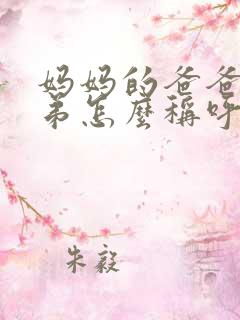 妈妈的爸爸
弟怎麽稱呼
朱毅